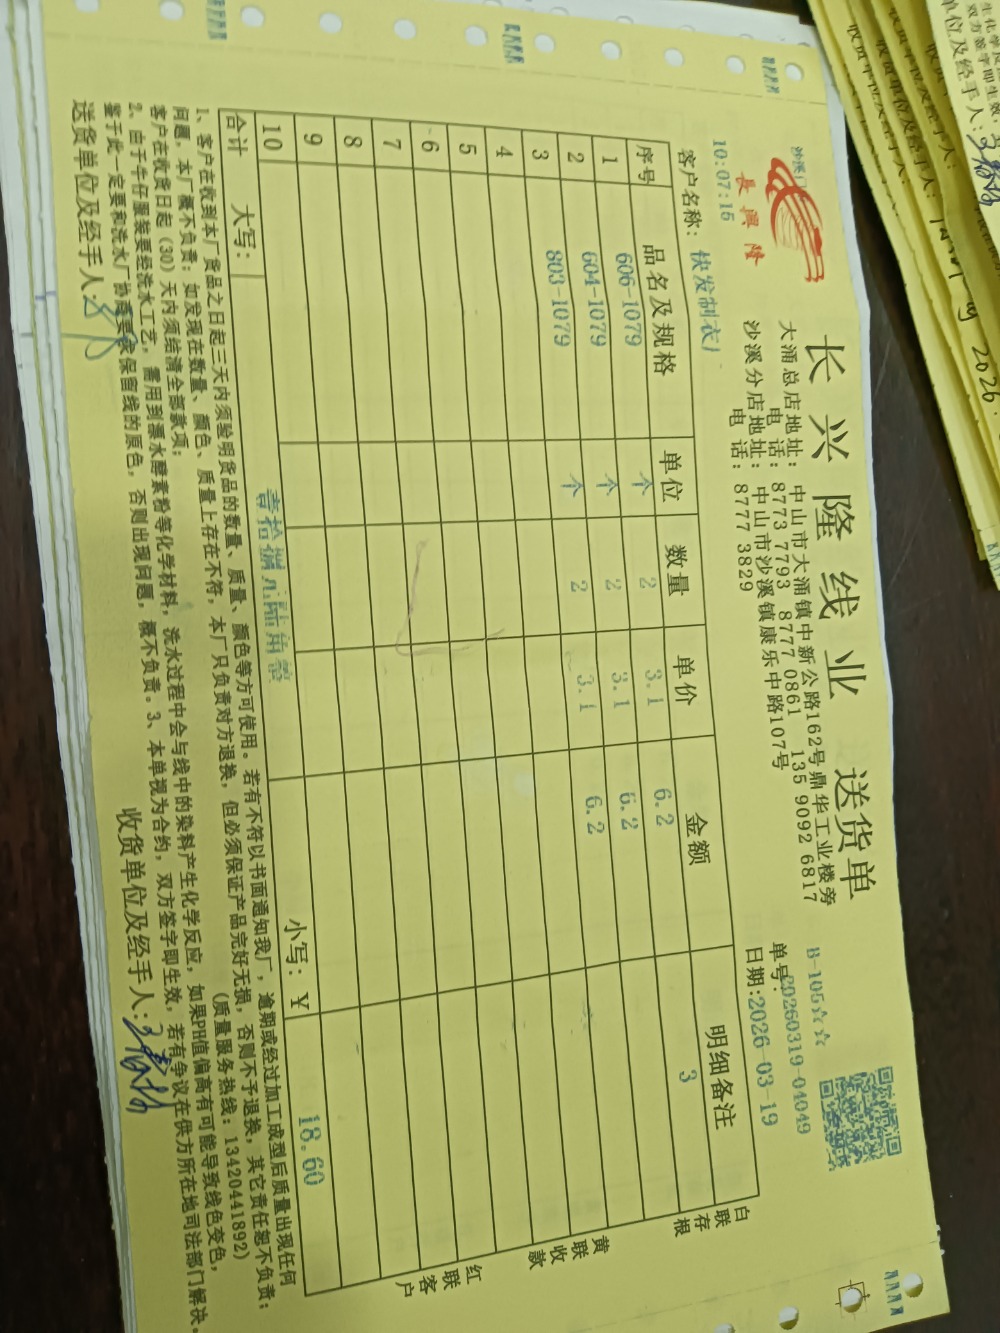 沙溪门
長興隆
长兴隆线业 送货单
大涌总店地址：中山市大涌镇中新公路162号鼎华工业楼旁
电 话：8773 7793 8777 0861 135 9092 6817
沙溪分店地址：中山市沙溪镇康乐中路107号
电 话：8777 3829
B-105☆☆
单号：20260319-04049
日期：2026-03-19
10:07:15
客户名称：快发制衣厂
序号 品名及规格 单位 数量 单价 金额 明细备注
1 606-1079 个 2 3.1 6.2 3
2 604-1079 个 2 3.1 6.2
3 803-1079 个 2 3.1 6.2
4
5
6
7
8
9
10
合计 大写： 壹拾捌元陆角整 小写：￥ 18.60
白联存根
黄联收款
红联客户
1、客户在收到本厂货品之日起三天内须验明货品的数量、质量、颜色等方可使用。若有不符以书面通知我厂，逾期或经过加工成型后质量出现任何
问题，本厂概不负责；如发现在数量、颜色、质量上存在不符，本厂只负责对方退换，但必须保证产品完好无损，否则不予退换，其它责任恕不负责；
客户在收货日起（30）天内须结清全部款项； （质量服务热线：13420441892）
2、由于牛仔服装要经洗水工艺，需用到漂水酵素粉等化学材料，洗水过程中会与线中的染料产生化学反应，如果PH值偏高有可能导致线色变色，
鉴于此一定要和洗水厂协商要求保留线的原色，否则出现问题，概不负责。3、本单视为合约，双方签字即生效，若有争议在供方所在地司法部门解决。
送货单位及经手人：
收货单位及经手人：
双方签字即生效，
单位及经手人：
收货单位及经手人：
2026.